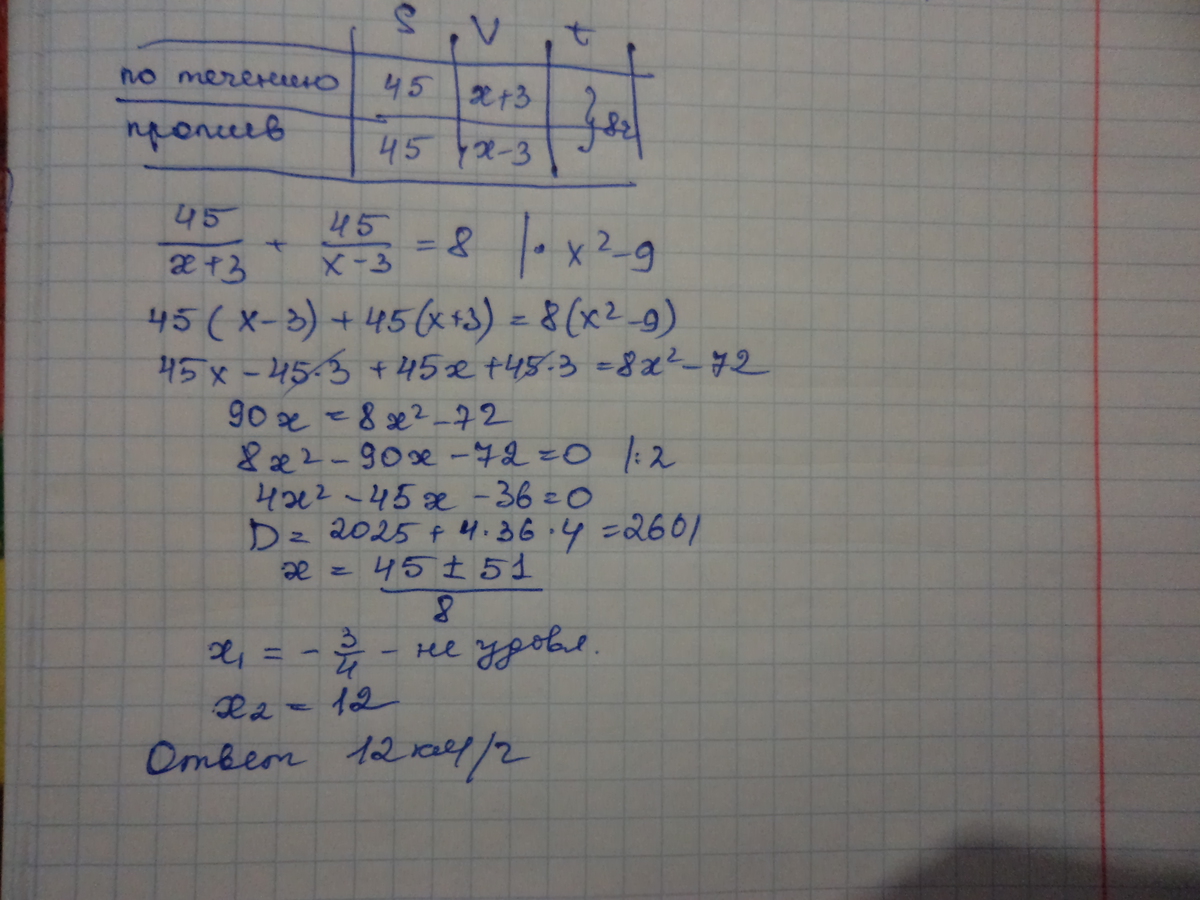 S V t
по течению 45 x+3
против 45 x-3 } 8ч
45/x+3 + 45/x-3 = 8 |· x²-9
45(x-3)+45(x+3)=8(x²-9)
45x-45·3+45x+45·3=8x²-72
90x=8x²-72
8x²-90x-72=0 |:2
4x²-45x-36=0
D=2025+4·36·4=2601
x=45±51/8
x₁=-3/4 - не удовл.
x₂=12
Ответ 12км/ч